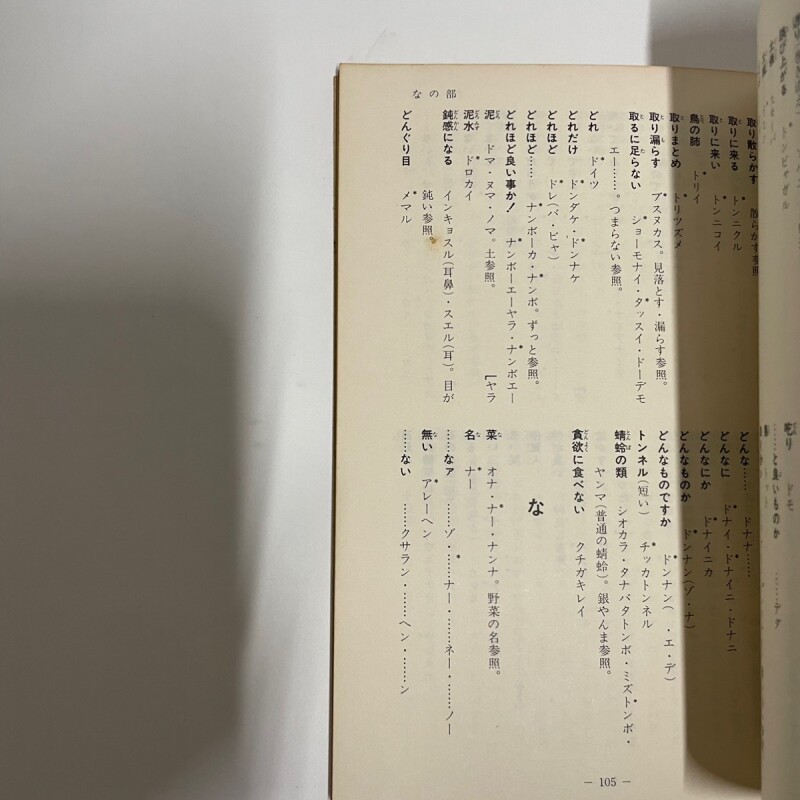 なの部
取り散らかす　散らかす参照
取りに来る　トンニクル
取りに来い　トンニコイ
鳥の肺　トリイ
取りまとめ　トリツズメ
取り漏らす　ブスヌカス。見落とす・漏らす参照。
取るに足らない　ショーモナイ・タッスイ・ドーデモ
エー……。つまらない参照。
どれ　ドイツ
どれだけ　ドンダケ・ドンナケ
どれほど　ドレ(バ・ビャ)
どれほど……　ナンボーカ・ナンボ。ずっと参照。
どれほど良い事か！　ナンボーエーヤラ・ナンボエー
[ヤラ
泥　ドマ・ヌマ・ノマ。土参照。
泥水　ドロカイ
鈍感になる　インキョスル(耳鼻)・スエル(耳)。目が
鈍い参照。
どんぐり目　メマル
どんな……　ドナナ……
どんなに　ドナイ・ドナイニ・ドナニ
どんなにか　ドナイニカ
どんなものか　ドンナン(ゾ・ナ)
どんなものですか　ドンナン(　・エ・デ)
トンネル(短い)　チッカトンネル
蜻蛉の類　シオカラ・タナバタトンボ・ミズトンボ・
ヤンマ(普通の蜻蛉)。銀やんま参照。
貪欲に食べない　クチガキレイ
な
菜　オナ・ナー・ナンナ。野菜の名参照。
名　ナー
……なァ　……ゾ・……ナー・……ネー・……ノー
無い　アレーヘン
……ない　……クサラン・……ヘン・……ン
— 105 —
叱り　ドモ
……と良いものか　……デク